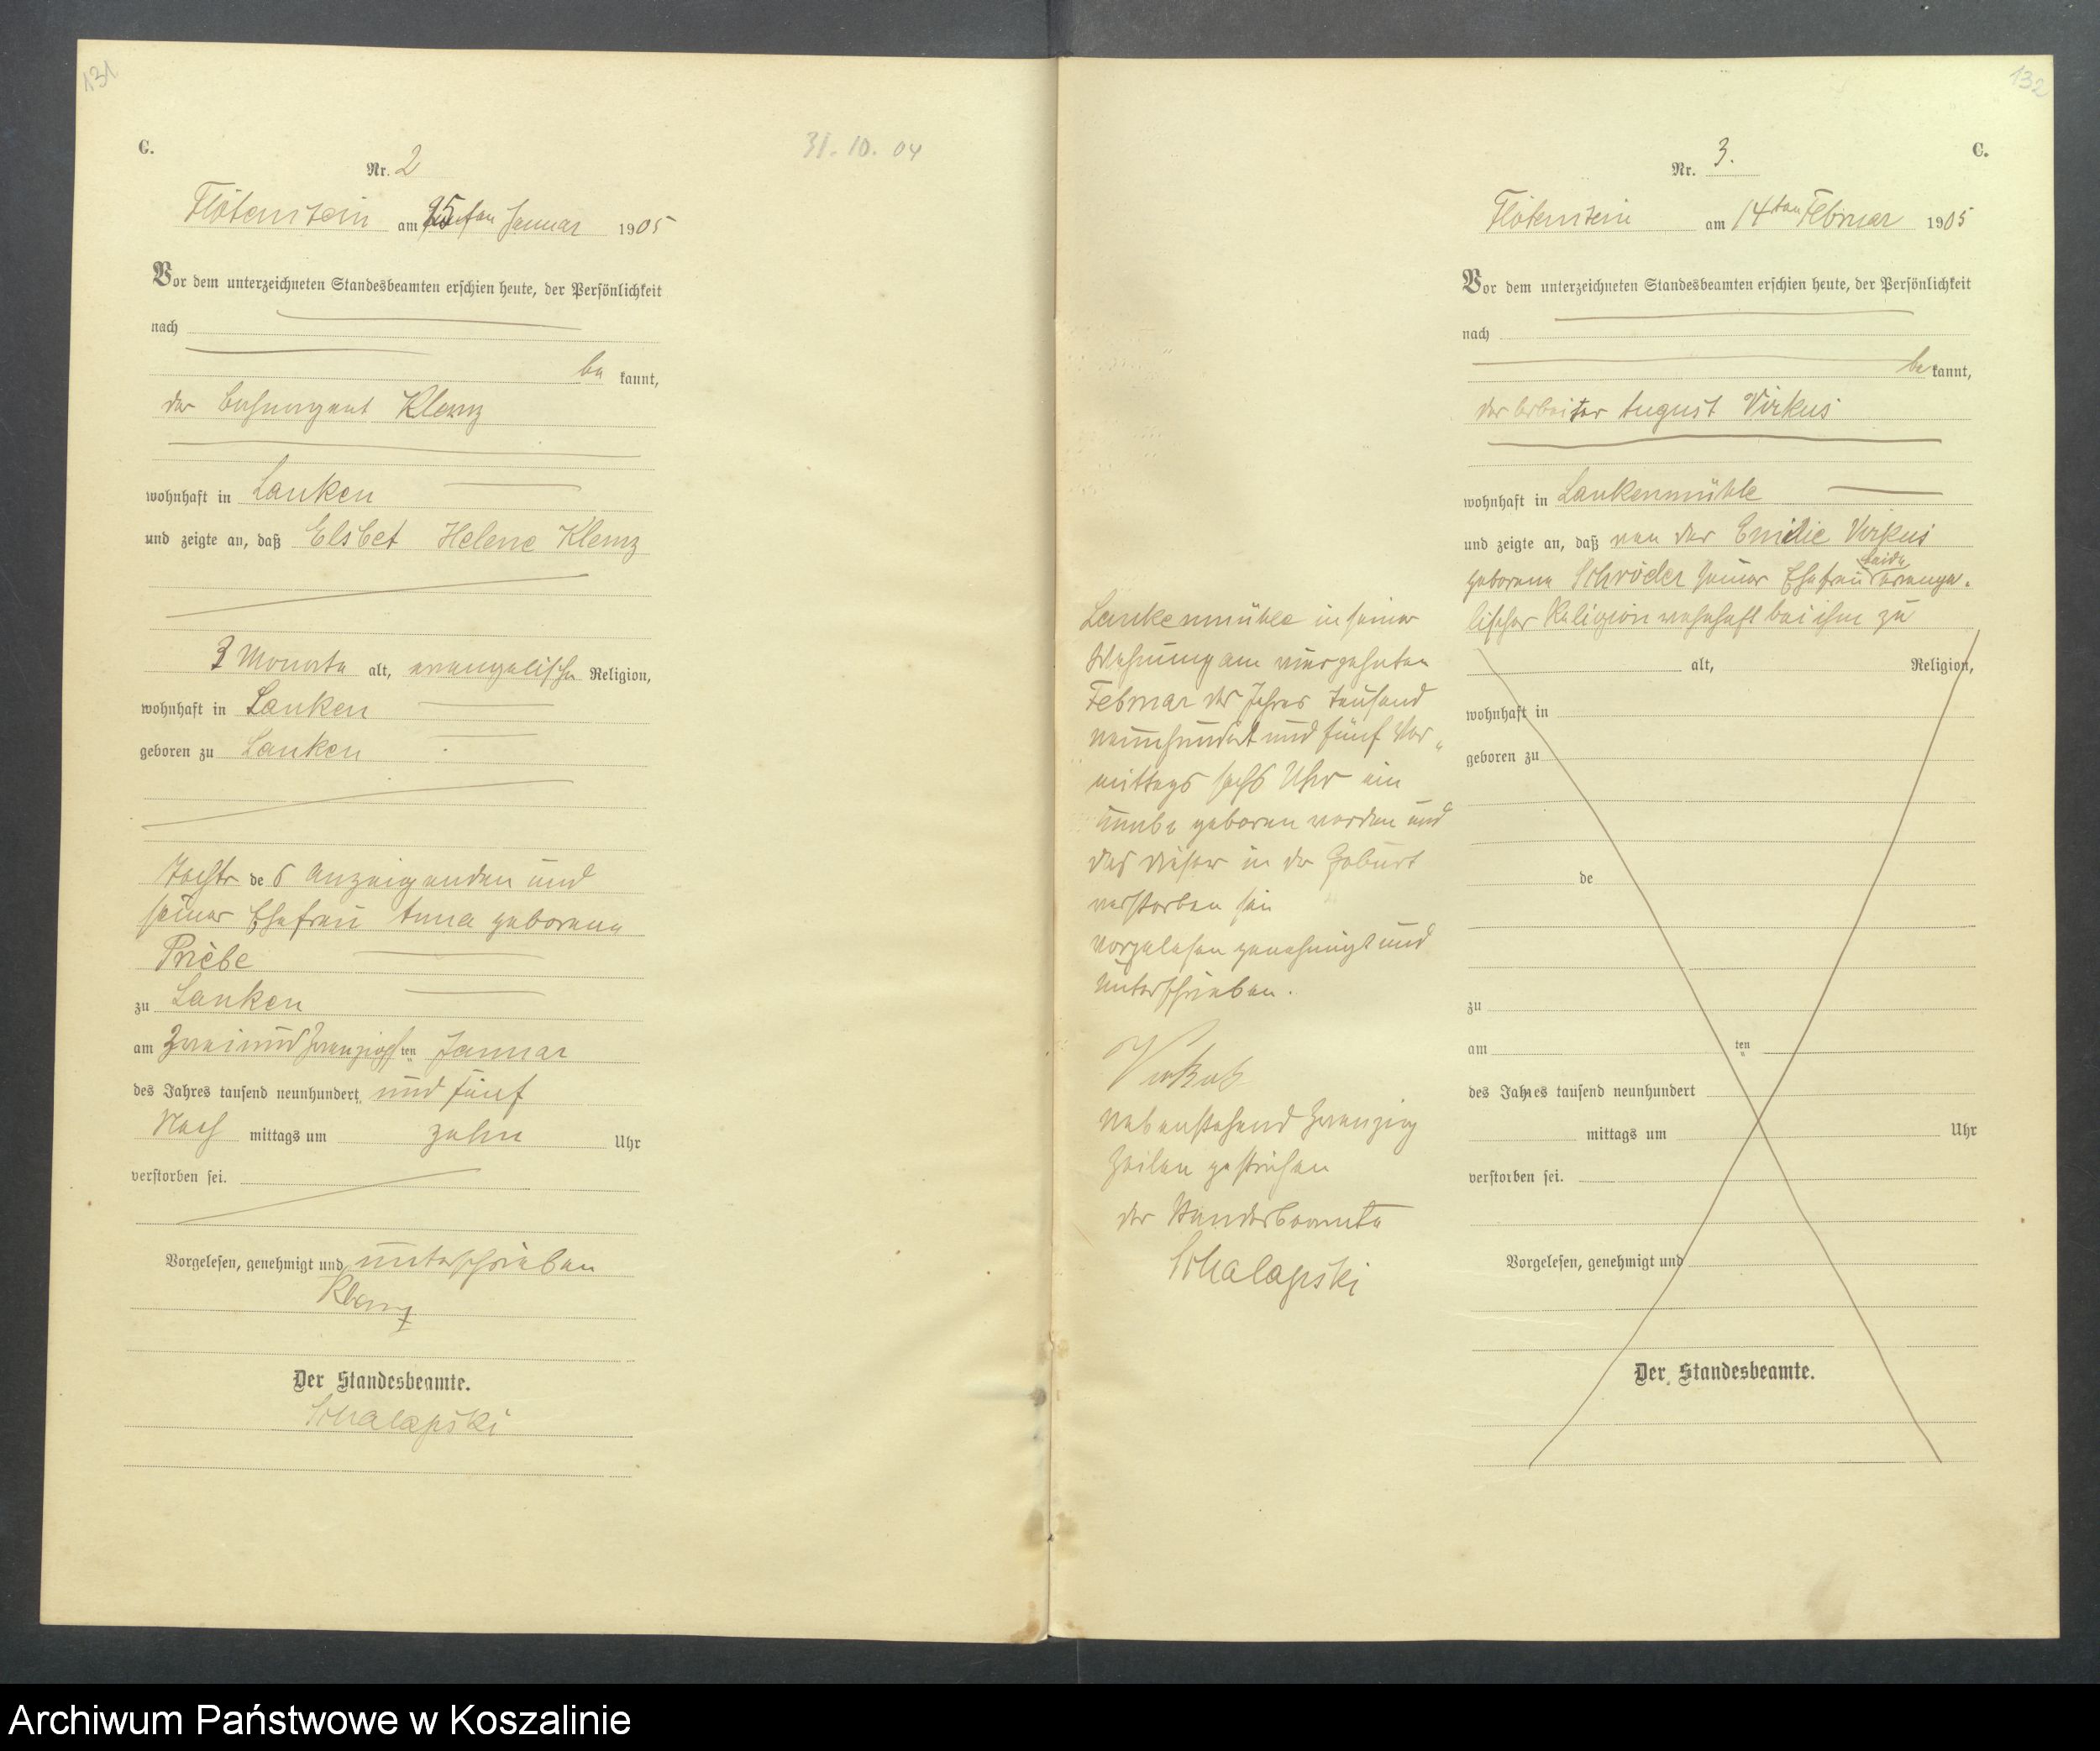 131
C.
31. 10. 04
Nr. 2
Flötenstein am 25ten Januar 1905
Vor dem unterzeichneten Standesbeamten erschien heute, der Persönlichkeit
nach
be kannt,
der Klemz
wohnhaft in Lanken
und zeigte an, daß Elsbet Helene Klemz
3 Monate alt, evangelischer Religion,
wohnhaft in Lanken
geboren zu Lanken
Tochter des Anzeigenden und
seiner Ehefrau Anna geborene
Priebe
zu Lanken
am zweiundzwanzigsten Januar
des Jahres tausend neunhundert und fünf
Nach mittags um zehn Uhr
verstorben sei.
Vorgelesen, genehmigt und unterschrieben
Klemz
Der Standesbeamte.
Schalapski
132
C.
Nr. 3.
Flötenstein am 14ten Februar 1905
Vor dem unterzeichneten Standesbeamten erschien heute, der Persönlichkeit
nach
be kannt,
der Arbeiter August Virkus
wohnhaft in Lankenmühle
und zeigte an, daß von der Emilie Virkus
geborene Schröder seiner Ehefrau beide evange-
lischer Religion wohnhaft bei ihm zu
alt, Religion,
wohnhaft in
geboren zu
de
zu
am ten
des Jahres tausend neunhundert
mittags um Uhr
verstorben sei.
Vorgelesen, genehmigt und
Der Standesbeamte.
Lankenmühle in seiner
Wohnung am vierzehnten
Februar des Jahres tausend
neunhundert und fünf Vor-
mittags sechs Uhr ein
geboren worden und
das dieser in der Geburt
verstorben sei
Vorgelesen genehmigt und
unterschrieben.
Virkus
Nebenstehend zwanzig
Zeilen gestrichen
der Standesbeamte
Schalapski
Archiwum Państwowe w Koszalinie